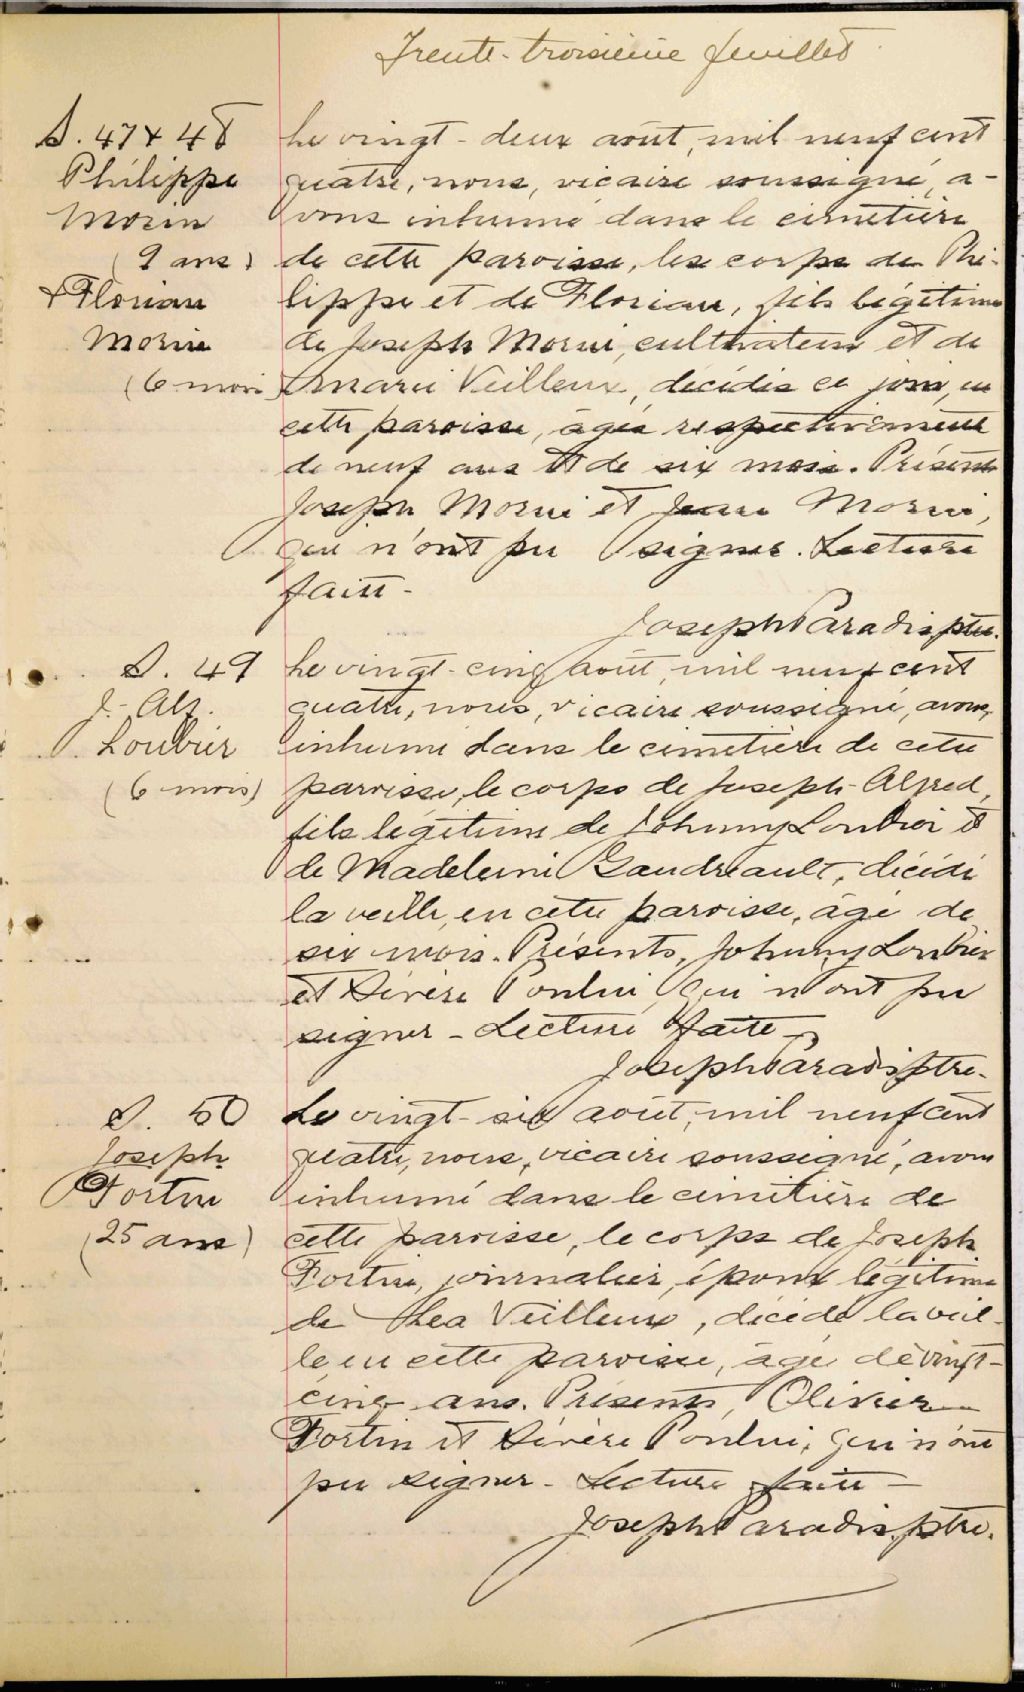 Trente-troisième feuillet
S. 47 & 48
Philippe
Morin
(9 ans)
& Florian
Morin
(6 mois)
Le vingt-deux août, mil neuf cent
quatre, nous, vicaire soussigné, a-
vons inhumé dans le cimetière
de cette paroisse, les corps de Phi-
lippe et de Florian, fils légitimes
de Joseph Morin, cultivateur et de
Marie Veilleux, décédés ce jour, en
cette paroisse, âgés respectivement
de neuf ans et de six mois. Présents
Joseph Morin et Jean Morin,
qui n'ont pu signer. Lecture
faite-
Joseph Paradis ptre.
S. 49
J.-Alf.
Loubier
(6 mois)
Le vingt-cinq août, mil neuf cent
quatre, nous, vicaire soussigné, avons,
inhumé dans le cimetière de cette
paroisse, le corps de Joseph-Alfred,
fils légitime de Johnny Loubier et
de Madeleine Gaudreault, décédé
la veille, en cette paroisse, âgé de
six mois. Présents, Johnny Loubier
et Sévère Poulin qui n'ont pu
signer - Lecture faite -
Joseph Paradis ptre.
S. 50
Joseph
Fortin
(25 ans)
Le vingt-six août, mil neuf cent
quatre, nous, vicaire soussigné, avons
inhumé dans le cimetière de
cette paroisse, le corps de Joseph
Fortin, journalier, époux légitime
de Léa Veilleux, décédé la veil-
le, en cette paroisse, âgé de vingt-
cinq ans. Présents, Olivier
Fortin et Sévère Poulin, qui n'ont
pu signer - Lecture faite -
Joseph Paradis, ptre.